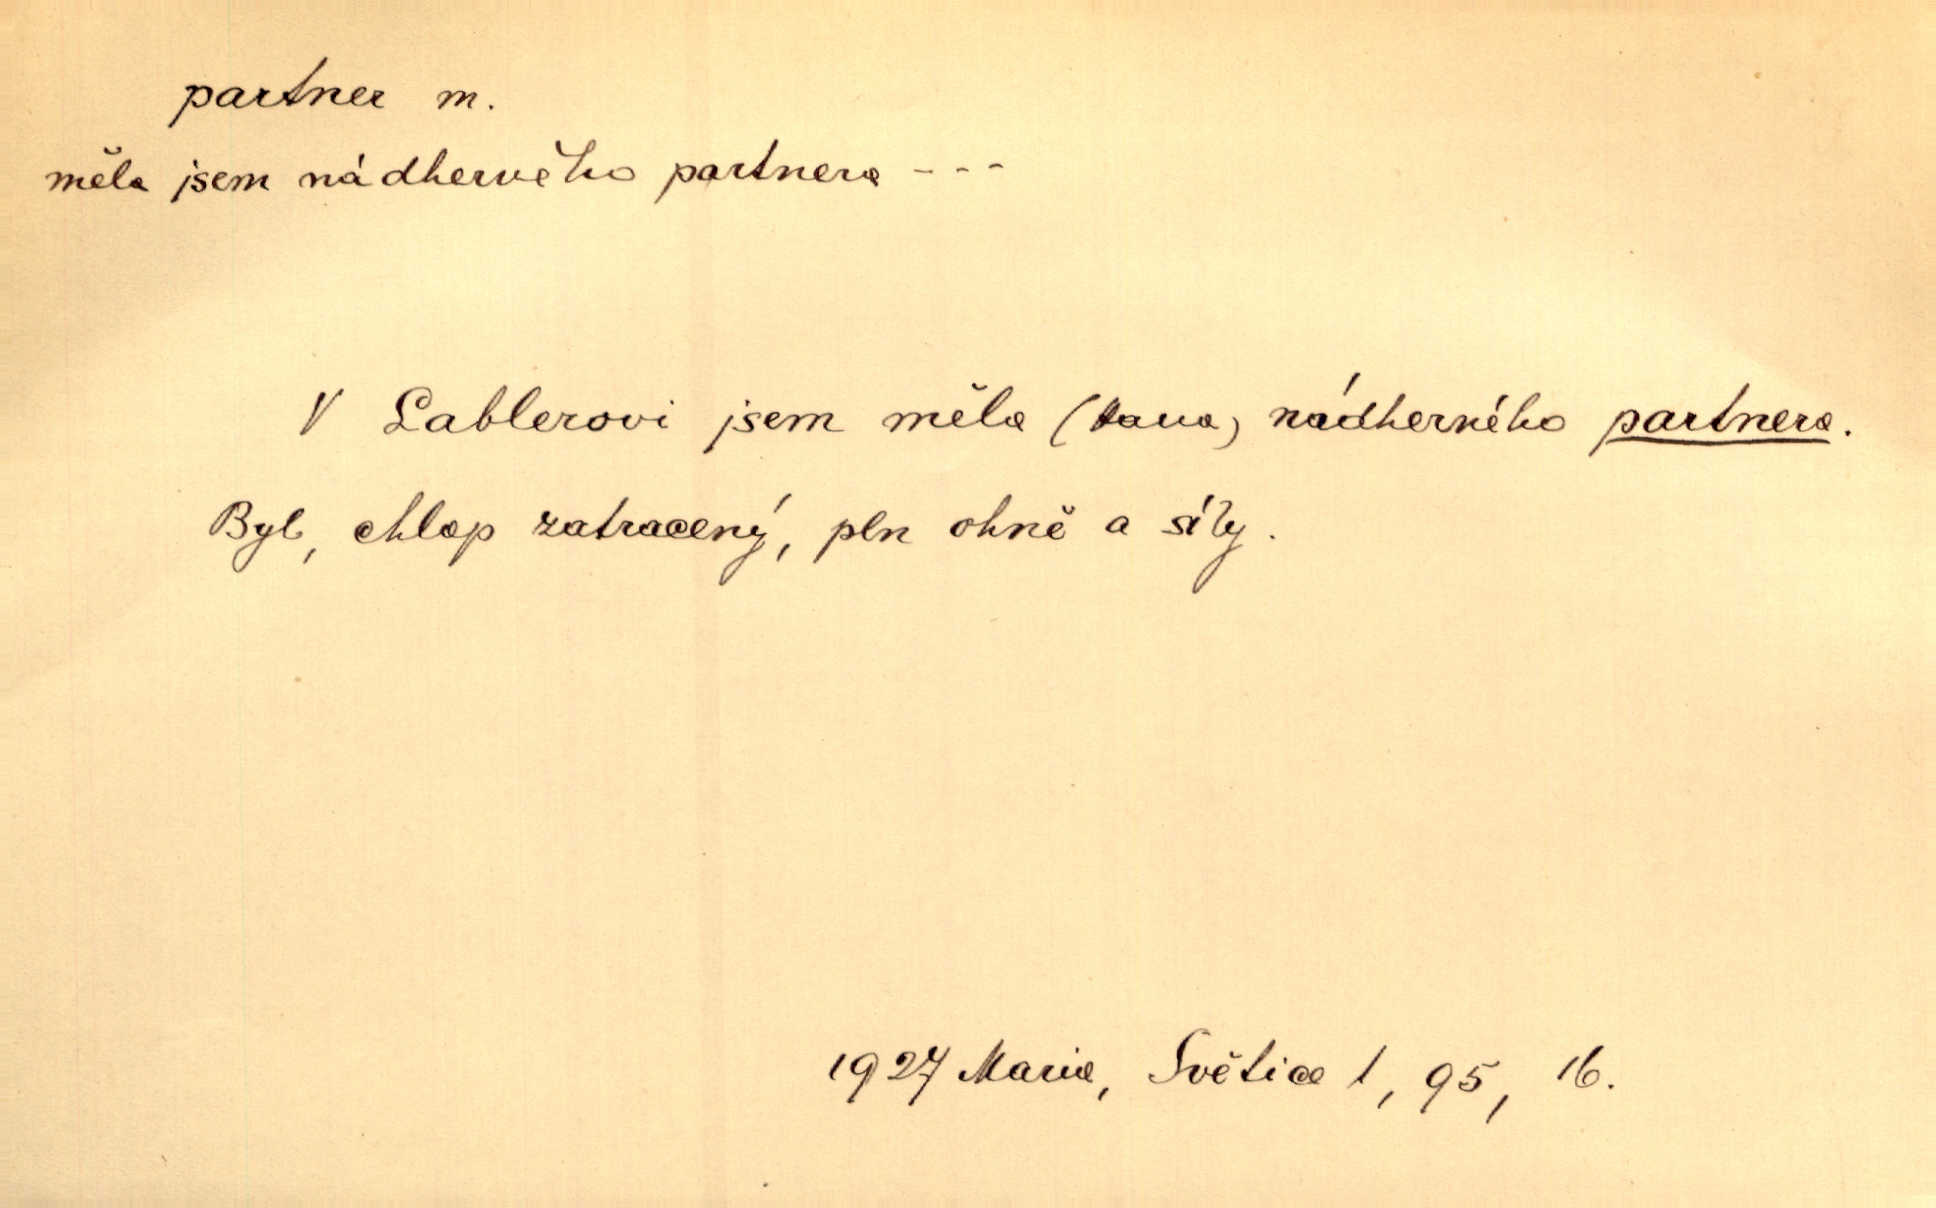 partner m.
měla jsem nádherného partnera - - -
V Lablerovi jsem měla (Hana) nádherného partnera.
Byl, chlap zatracený, pln ohně a síly.
1927 Maria, Světice 1, 95, 16.